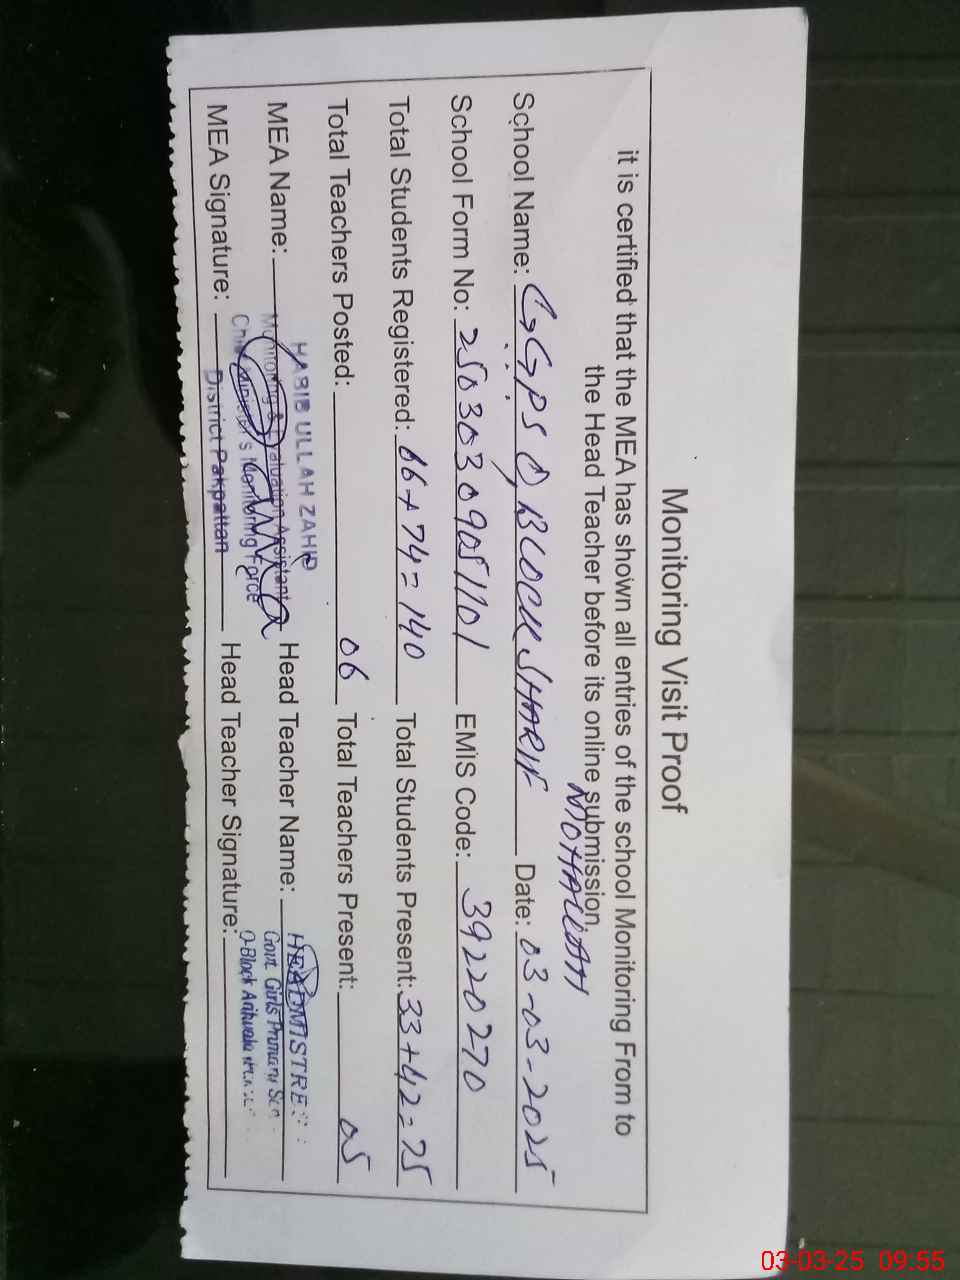 Monitoring Visit Proof
it is certified that the MEA has shown all entries of the school Monitoring From to
the Head Teacher before its online submission.
MOHALLAH
School Name: G.G.P.S O, BLOCK SHARIF Date: 03-03-2025
School Form No: 25030309051101 EMIS Code: 39220270
Total Students Registered: 66+74=140 Total Students Present: 33+42=75
Total Teachers Posted: 06 Total Teachers Present: 05
HABIB ULLAH ZAHID
MEA Name: Monitoring & Evaluation Assistant Head Teacher Name: HEADMISTRE
Chief Minister's Monitoring Force Govt. Girls Primary
MEA Signature: District Pakpattan Head Teacher Signature: O-Block Arifwala
03-03-25 09:55